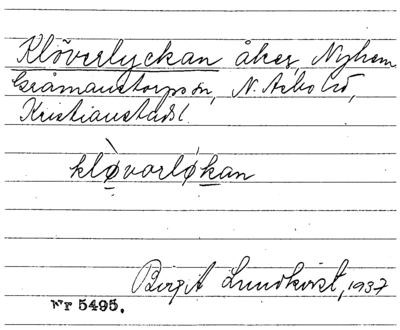 Klöverlyckan åker, Nyhem
Gråmanstorps sn, N. Åsbo hd,
Kristianstads l.
klòvorlø̀kan
Birgit Lundkvist, 1937
Nr 5495.